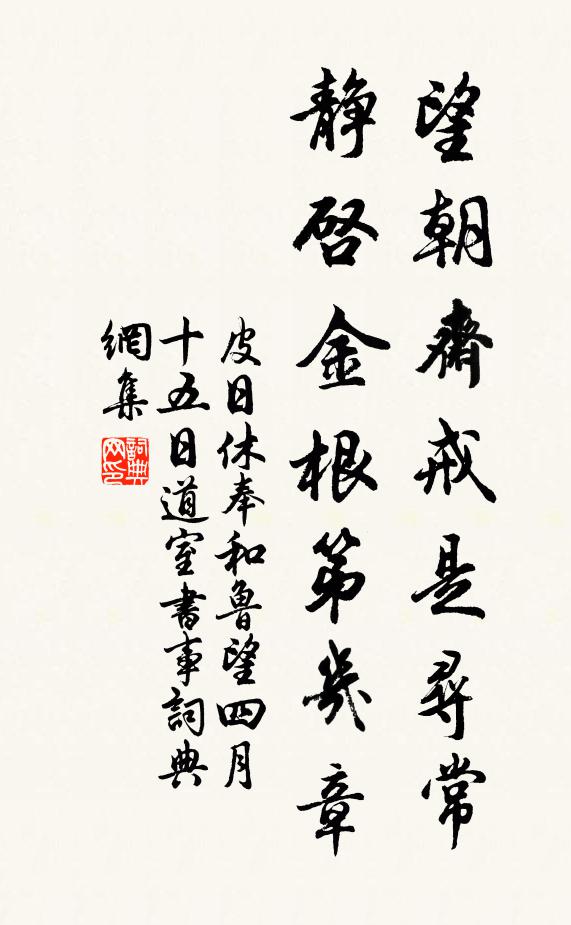 望朝齋戒是尋常
靜啓金根第幾章
皮日休奉和魯望四月
十五日道室書事詞典
網集
詞典网印